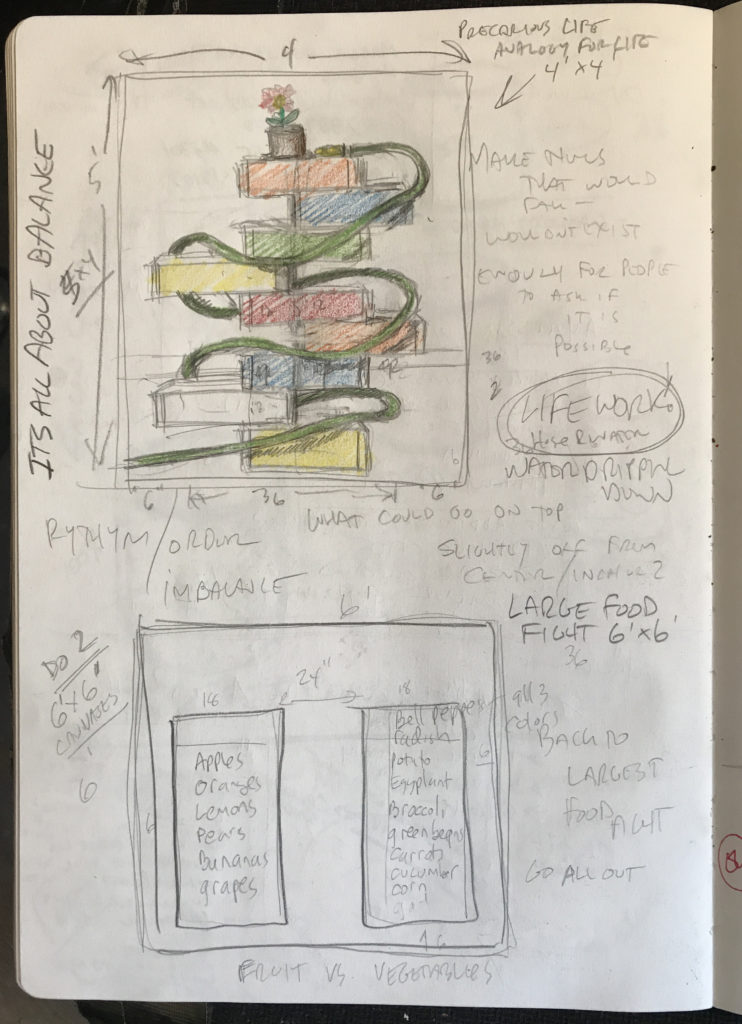 4
PRECARIOUS LIFE
ANALOGY FOR LIFE
4' X4
ITS ALL ABOUT BALANCE
5'
5x4
THAT WOULD
FALL —
WOULDNT EXIST
FOR PEOPLE
TO ASK IF
IT IS
POSSIBLE
36
2
LIFE WORK
DOWN
"6"
36
"6"
WHAT COULD GO ON TOP
RYTHYM / ORDER
IMBALANCE
SLIGHTLY OFF FROM
CENTER
6'
LARGE FOOD
FIGHT 6'x6'
36
DO 2
6'x6"
CANVASES
6
24"
18
18
Bell pepper
all 3
colors
radish
Apples
potato
Oranges
Eggplant
Lemons
Broccoli
Pears
greenbeans
Bananas
carrots
grapes
cucumber
corn
6
6
BACK TO
LARGEST
FOOD
FIGHT
GO ALL OUT
FRUIT VS. VEGETABLES